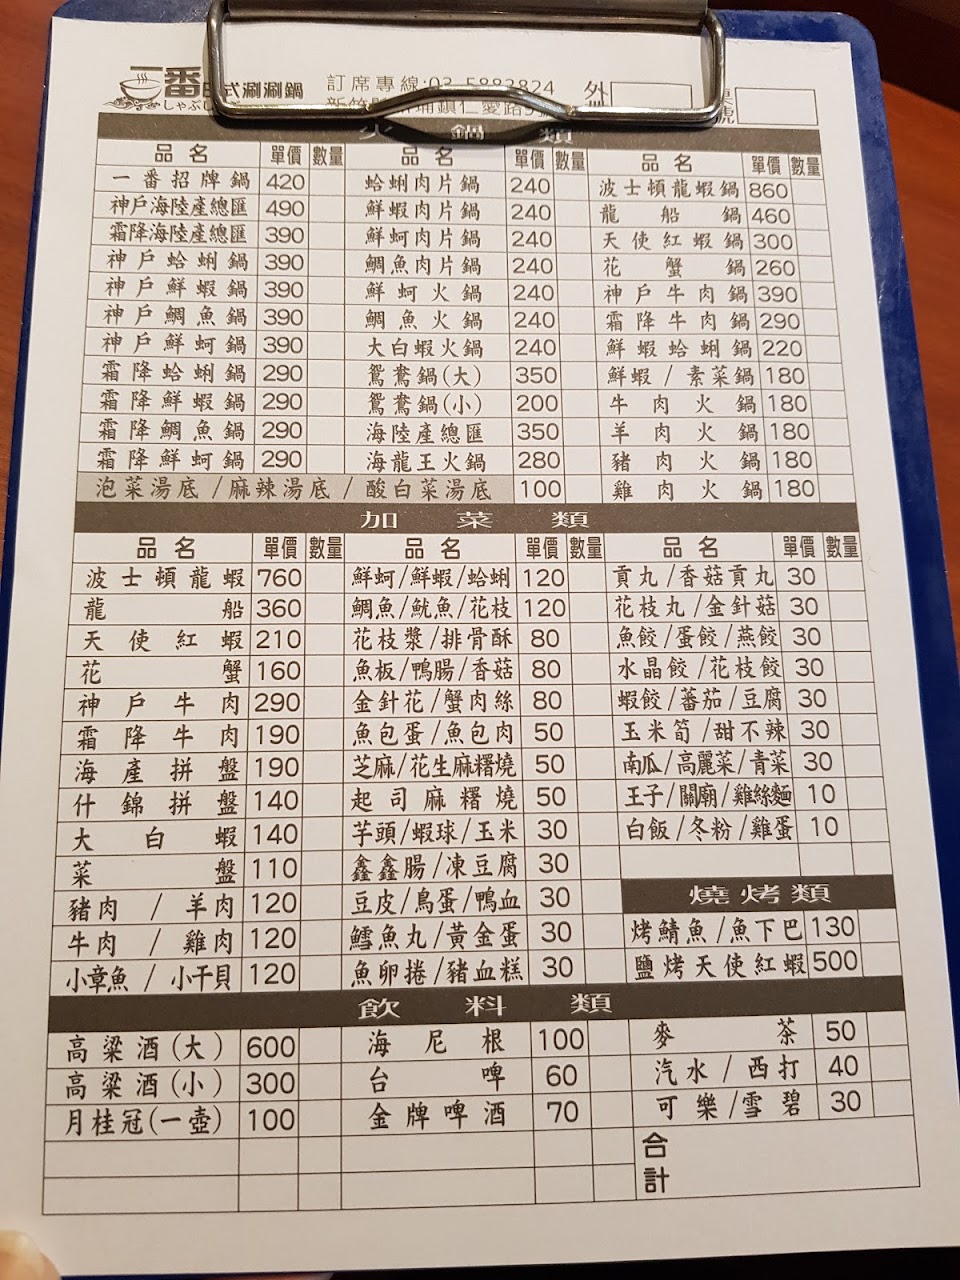 一番日式涮涮鍋 訂席專線:03-5883824 外
しゃぶし
仁愛路 號
火鍋類
品名 單價 數量 品名 單價 數量 品名 單價 數量
一番招牌鍋 420 蛤蜊肉片鍋 240 波士頓龍蝦鍋 860
神戶海陸產總匯 490 鮮蝦肉片鍋 240 龍船鍋 460
霜降海陸產總匯 390 鮮蚵肉片鍋 240 天使紅蝦鍋 300
神戶蛤蜊鍋 390 鯛魚肉片鍋 240 花蟹鍋 260
神戶鮮蝦鍋 390 鮮蚵火鍋 240 神戶牛肉鍋 390
神戶鯛魚鍋 390 鯛魚火鍋 240 霜降牛肉鍋 290
神戶鮮蚵鍋 390 大白蝦火鍋 240 鮮蝦蛤蜊鍋 220
霜降蛤蜊鍋 290 鴛鴦鍋(大) 350 鮮蝦/素菜鍋 180
霜降鮮蝦鍋 290 鴛鴦鍋(小) 200 牛肉火鍋 180
霜降鯛魚鍋 290 海陸產總匯 350 羊肉火鍋 180
霜降鮮蚵鍋 290 海龍王火鍋 280 豬肉火鍋 180
泡菜湯底/麻辣湯底/酸白菜湯底 100 雞肉火鍋 180
加菜類
品名 單價 數量 品名 單價 數量 品名 單價 數量
波士頓龍蝦 760 鮮蚵/鮮蝦/蛤蜊 120 貢丸/香菇貢丸 30
龍船 360 鯛魚/魷魚/花枝 120 花枝丸/金針菇 30
天使紅蝦 210 花枝漿/排骨酥 80 魚餃/蛋餃/燕餃 30
花蟹 160 魚板/鴨腸/香菇 80 水晶餃/花枝餃 30
神戶牛肉 290 金針花/蟹肉絲 80 蝦餃/蕃茄/豆腐 30
霜降牛肉 190 魚包蛋/魚包肉 50 玉米筍/甜不辣 30
海產拼盤 190 芝麻/花生麻糬燒 50 南瓜/高麗菜/青菜 30
什錦拼盤 140 起司麻糬燒 50 王子/關廟/雞絲麵 10
大白蝦 140 芋頭/蝦球/玉米 30 白飯/冬粉/雞蛋 10
菜盤 110 鑫鑫腸/凍豆腐 30
豬肉/羊肉 120 豆皮/鳥蛋/鴨血 30 燒烤類
牛肉/雞肉 120 鱈魚丸/黃金蛋 30 烤鯖魚/魚下巴 130
小章魚/小干貝 120 魚卵捲/豬血糕 30 鹽烤天使紅蝦 500
飲料類
高粱酒(大) 600 海尼根 100 麥茶 50
高粱酒(小) 300 台啤 60 汽水/西打 40
月桂冠(一壺) 100 金牌啤酒 70 可樂/雪碧 30
合計